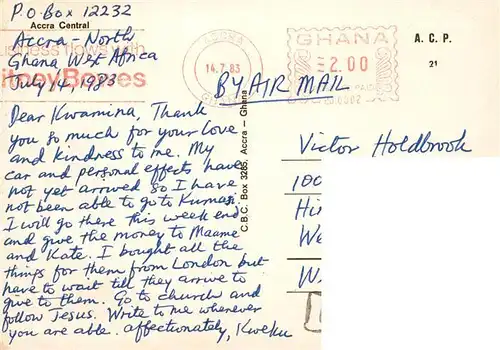 P.O. Box 12232
Accra Central
Accra - North
Ghana West Africa
July 14, 1983
usiness flows with
itneyBowes
ACCRA
14.7.83
GHANA
GHANA
2.00
A. C. P.
21
BY AIR MAIL
Dear Kwamina, Thank
you so much for your love
and kindness to me. My
car and personal effects have
not yet arrived so I have
not been able to go to Kumasi.
I will go there this week end
and give the money to Maame
and Kate. I bought all the
things for them from London but
have to wait till they arrive to
give to them. Go to church and
follow Jesus. Write to me whenever
you are able. affectionately, Kweku
C.B.C. Box 3285, Accra - Ghana
Victor Holdbrook
100
Hi
We
W